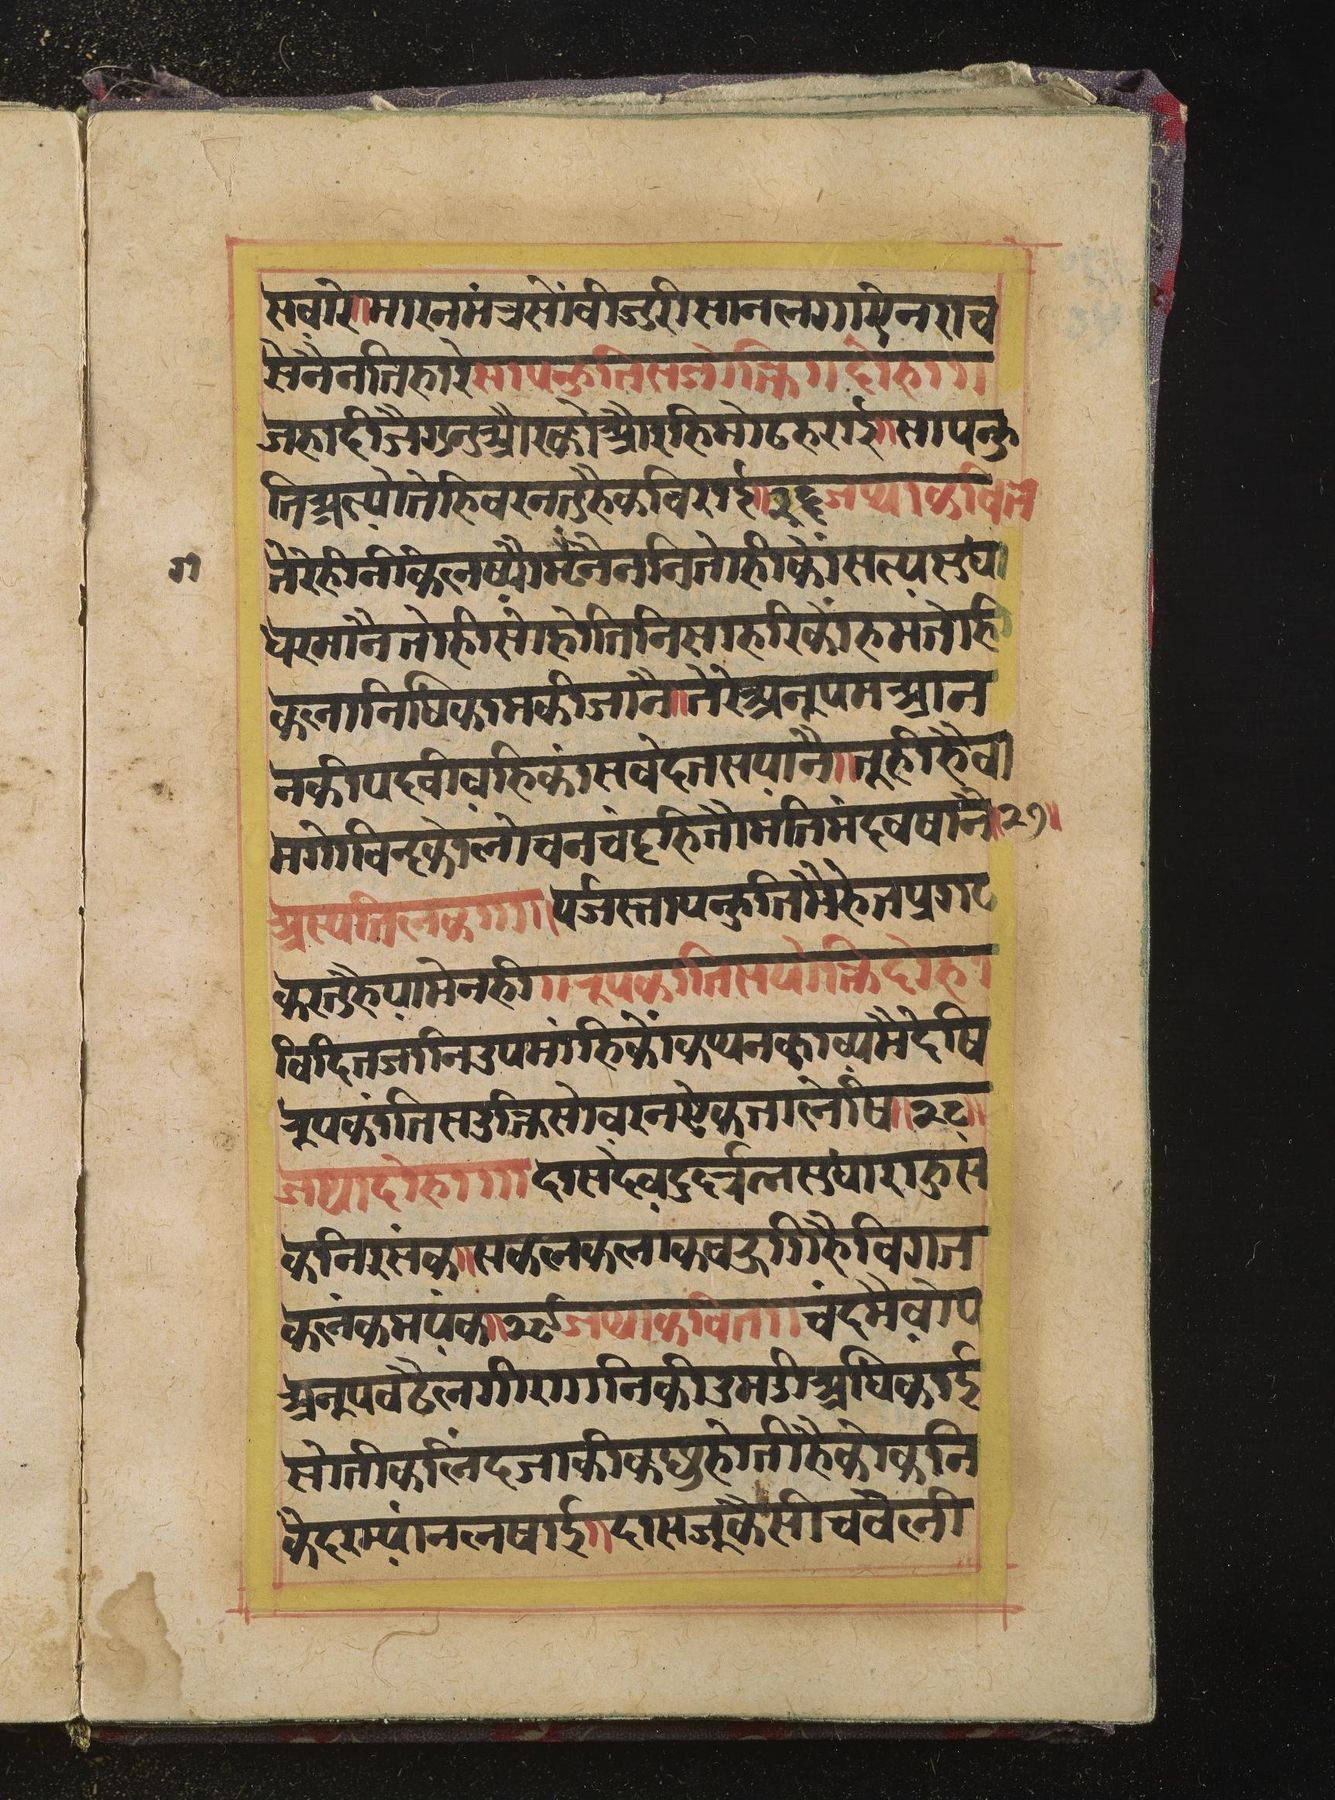 सवारे॥मारनमंत्रसोंवीजुरीसानलगाएनराच
सेनैनतिहारे सापन्हुतिसजोक्ति॥दोहा॥
जहादीजैगुनुऔरकोऔरहिमोठहराइ॥सापन्हु
तिअत्योतेहिवरनतुहैकविराइ॥२६ जथाकवित
तेरेहीनीकेलष्यौमृगनैननितोहीकोंसत्यसुधा
धरमानैतोहीसोंहोतिनिसाहरिकोंहमतोहि
कलानिधिकामकीजानै॥तेरेअनुपमआन
नकीपदवीवहिकोंसवेदतसयानै॥तूहीहैवा
मगोविन्दकोलोचनचंदहितौमतिमंदवषानै॥२७॥
अस्यतिलक॥॥पर्जस्तापन्हुतिमैहेतप्रगट
करतुहैयामेनही॥रूपकातिसयोक्तिदोहा
विदितजानिउपमाहिकोंकथनकाव्यमैदेषि
रूपकातिसउक्तिसोवरनऐकतालेषि॥२८॥
जथादोहा॥॥दाससदेवदुर्दर्त्रनसुधाराहुस
कनिरुसंक॥सकलकलाकवऊगिहैविगत
कलंकमयंक॥२९ जथाकवित॥चंदमैवोप
अनुपवढैलगीरागनिकीउमडीअधिकाई
सोतीकलिंदजाकीकछुहोतीहैकोकनि
केदरम्यांनलषाई॥दासजूकैसीचवैली